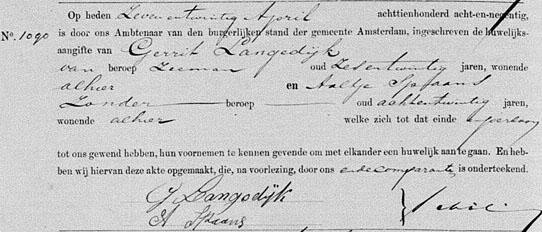 Op heden Zevenentwintig April achttienhonderd acht-en-negentig,
No. 1090 is door ons Ambtenaar van den burgerlijken stand der gemeente Amsterdam, ingeschreven de huwelijks-
aangifte van Gerrit Langedijk
van beroep Zeeman oud Zesentwintig jaren, wonende
alhier en Aaltje Spaans
Zonder beroep oud achtentwintig jaren,
wonende alhier welke zich tot dat einde in persoon
tot ons gewend hebben, hun voornemen te kennen gevende om met elkander een huwelijk aan te gaan. En heb-
ben wij hiervan deze akte opgemaakt, die, na voorlezing, door ons en de comparanten is onderteekend.
G. Langedijk
A Spaans